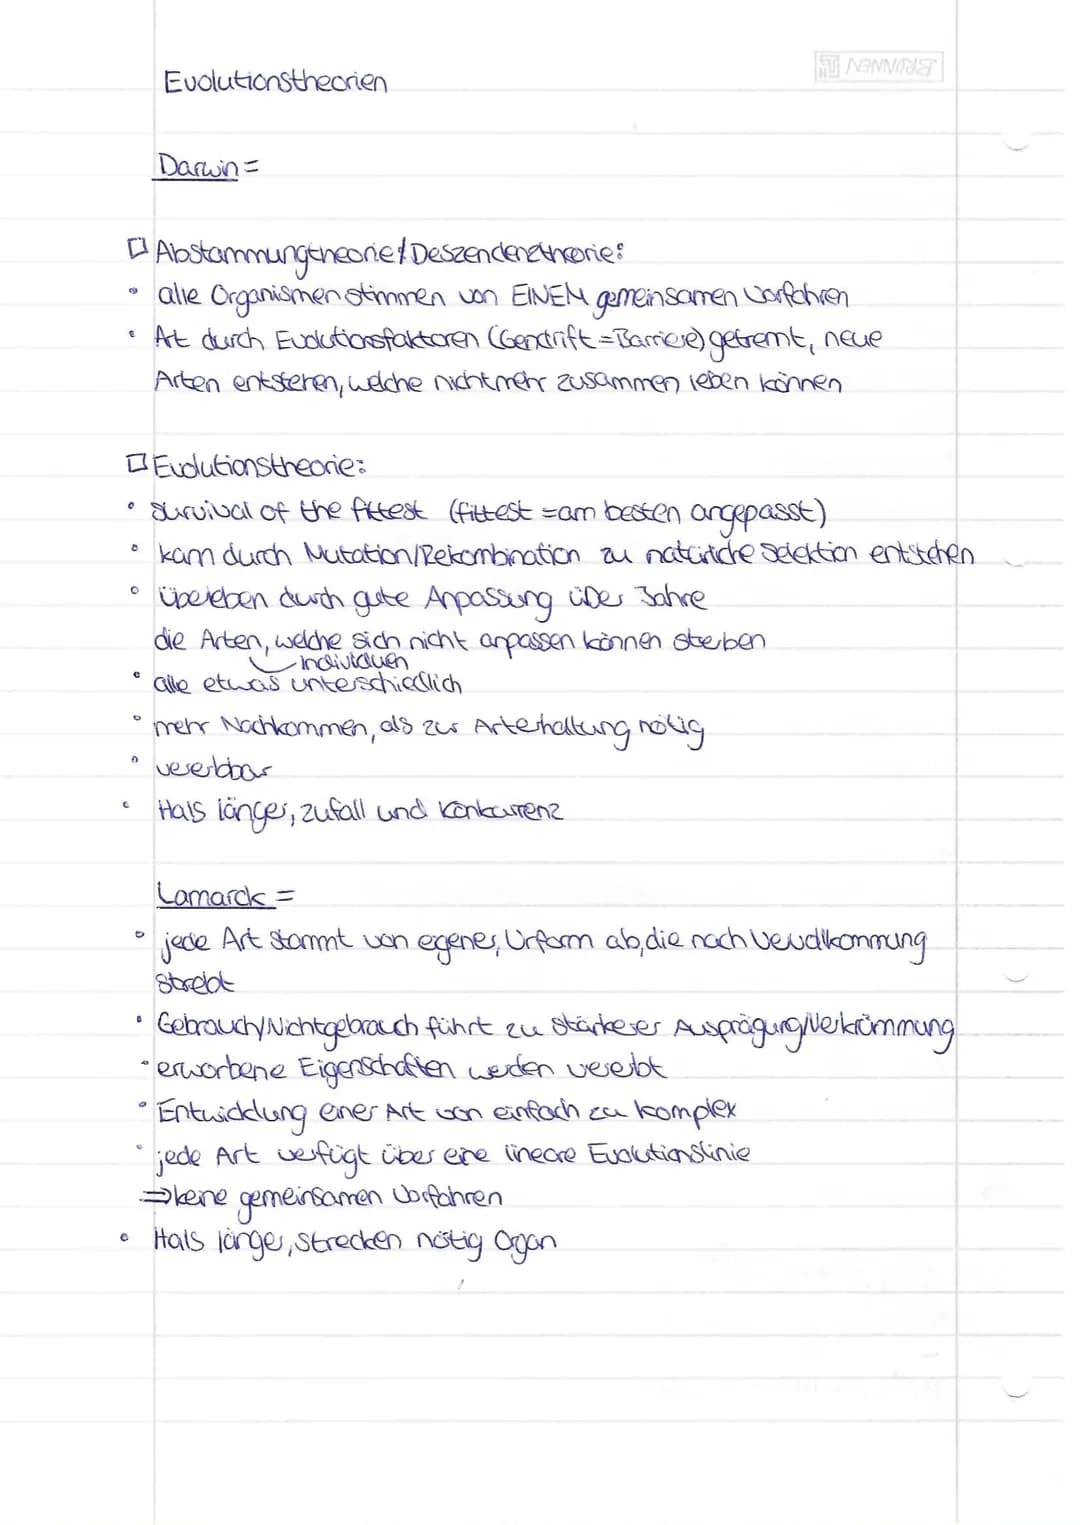 Evolutionstheorien
BRUNNEN
Darwin =
Abstammungtheorie/Deszendenztheorie:
• alle Organismen stimmen von EINEM gemeinsamen Vorfahren
• Art durch Evolutionsfaktoren (Gendrift = Barriere) getrennt, neue
Arten entstehen, welche nicht mehr zusammen leben können
Evolutionstheorie:
• survival of the fittest (fittest = am besten angepasst)
• kann durch Mutation/Rekombination zu natürliche Selektion entstehen
• überleben durch gute Anpassung über Jahre
die Arten, welche sich nicht anpassen können sterben
Individuen
• alle etwas unterschiedlich
• mehr Nachkommen, als zur Arterhaltung nötig
• vererbbar
• Hals länger, zufall und Konkurrenz
Lamarck =
• jede Art stammt von egener Urform ab, die nach Vervollkommung
strebt
• Gebrauch/Nichtgebrauch führt zu stärkerer Ausprägung/Verkrümmung
• erworbene Eigenschaften werden vererbt
• Entwicklung einer Art von einfach zu komplex
• jede Art verfügt über eine lineare Evolutionslinie
⇒ keine gemeinsamen Vorfahren
• Hals länger, strecken nötig Ogan